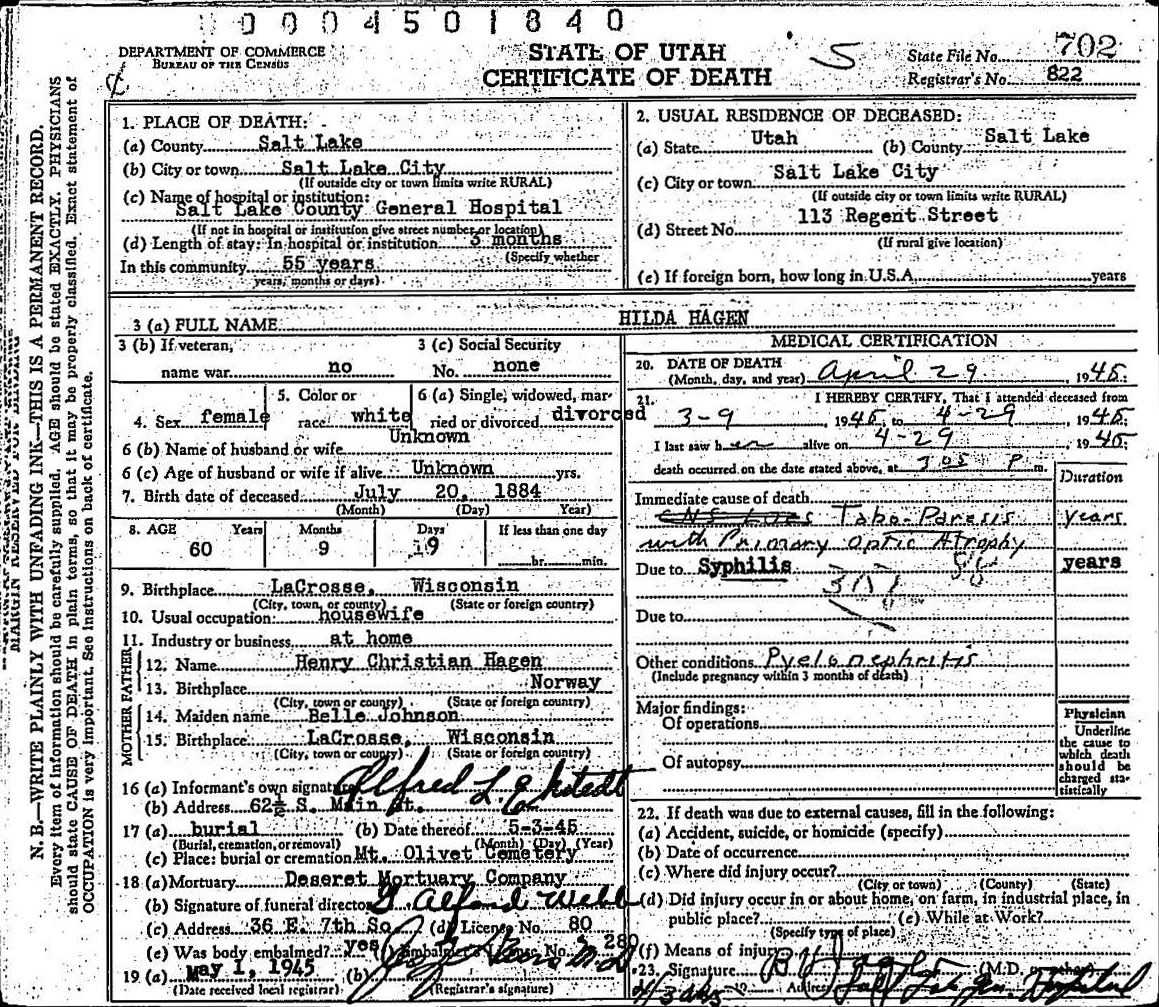 0004501840
DEPARTMENT OF COMMERCE
BUREAU OF THE CENSUS
STATE OF UTAH
CERTIFICATE OF DEATH
S
State File No. 702
Registrar's No. 822
N. B.—WRITE PLAINLY WITH UNFADING INK—THIS IS A PERMANENT RECORD.
Every item of information should be carefully supplied. AGE should be stated EXACTLY. PHYSICIANS
should state CAUSE OF DEATH in plain terms, so that it may be properly classified. Exact statement of
OCCUPATION is very important. See instructions on back of certificate.
MARGIN RESERVED FOR BINDING
1. PLACE OF DEATH:
(a) County Salt Lake
(b) City or town Salt Lake City
(If outside city or town limits write RURAL)
(c) Name of hospital or institution:
Salt Lake County General Hospital
(If not in hospital or institution give street number or location)
(d) Length of stay: In hospital or institution 3 months
(Specify whether
In this community 55 years
years, months or days)
2. USUAL RESIDENCE OF DECEASED:
(a) State Utah (b) County Salt Lake
(c) City or town Salt Lake City
(If outside city or town limits write RURAL)
(d) Street No. 113 Regent Street
(If rural give location)
(e) If foreign born, how long in U.S.A. years
3 (a) FULL NAME HILDA HAGEN
3 (b) If veteran, 3 (c) Social Security
name war no No. none
4. Sex female 5. Color or race white 6 (a) Single, widowed, married or divorced divorced
6 (b) Name of husband or wife Unknown
6 (c) Age of husband or wife if alive Unknown yrs.
7. Birth date of deceased July 20, 1884
(Month) (Day) (Year)
8. AGE Years Months Days If less than one day
60 9 19 hr. min.
9. Birthplace LaCrosse, Wisconsin
(City, town, or county) (State or foreign country)
10. Usual occupation housewife
11. Industry or business at home
FATHER
12. Name Henry Christian Hagen
13. Birthplace Norway
(City, town or county) (State or foreign country)
MOTHER
14. Maiden name Belle Johnson
15. Birthplace LaCrosse, Wisconsin
(City, town or county) (State or foreign country)
16 (a) Informant's own signature Alfred L.
(b) Address 62½ S. Main St.
17 (a) burial (b) Date thereof 5-3-45
(Burial, cremation, or removal) (Month) (Day) (Year)
(c) Place: burial or cremation Mt. Olivet Cemetery
18 (a) Mortuary Deseret Mortuary Company
(b) Signature of funeral director Webb
(c) Address 36 E. 7th So. (d) License No. 80
(e) Was body embalmed? yes Embalmer's License No. 280
19 (a) May 1, 1945 (b) M.D.
(Date received local registrar) (Registrar's signature)
MEDICAL CERTIFICATION
20. DATE OF DEATH
(Month, day, and year) April 29, 1945;
21. I HEREBY CERTIFY, That I attended deceased from
3-9, 1945, to 4-29, 1945;
I last saw her alive on 4-29, 1945;
death occurred on the date stated above, at 3 05 P m.
Duration
Immediate cause of death
CNS Lues Tabo-Paresis years
with Primary Optic Atrophy
Due to Syphilis years
Due to
Other conditions Pyelonephritis
(Include pregnancy within 3 months of death)
Major findings:
Of operations
Of autopsy
Physician
Underline
the cause to
which death
should be
charged sta-
tistically
22. If death was due to external causes, fill in the following:
(a) Accident, suicide, or homicide (specify)
(b) Date of occurrence
(c) Where did injury occur?
(City or town) (County) (State)
(d) Did injury occur in or about home, on farm, in industrial place, in
public place? (e) While at Work?
(Specify type of place)
(f) Means of injury
23. Signature (M.D. or other)
Address Hospital